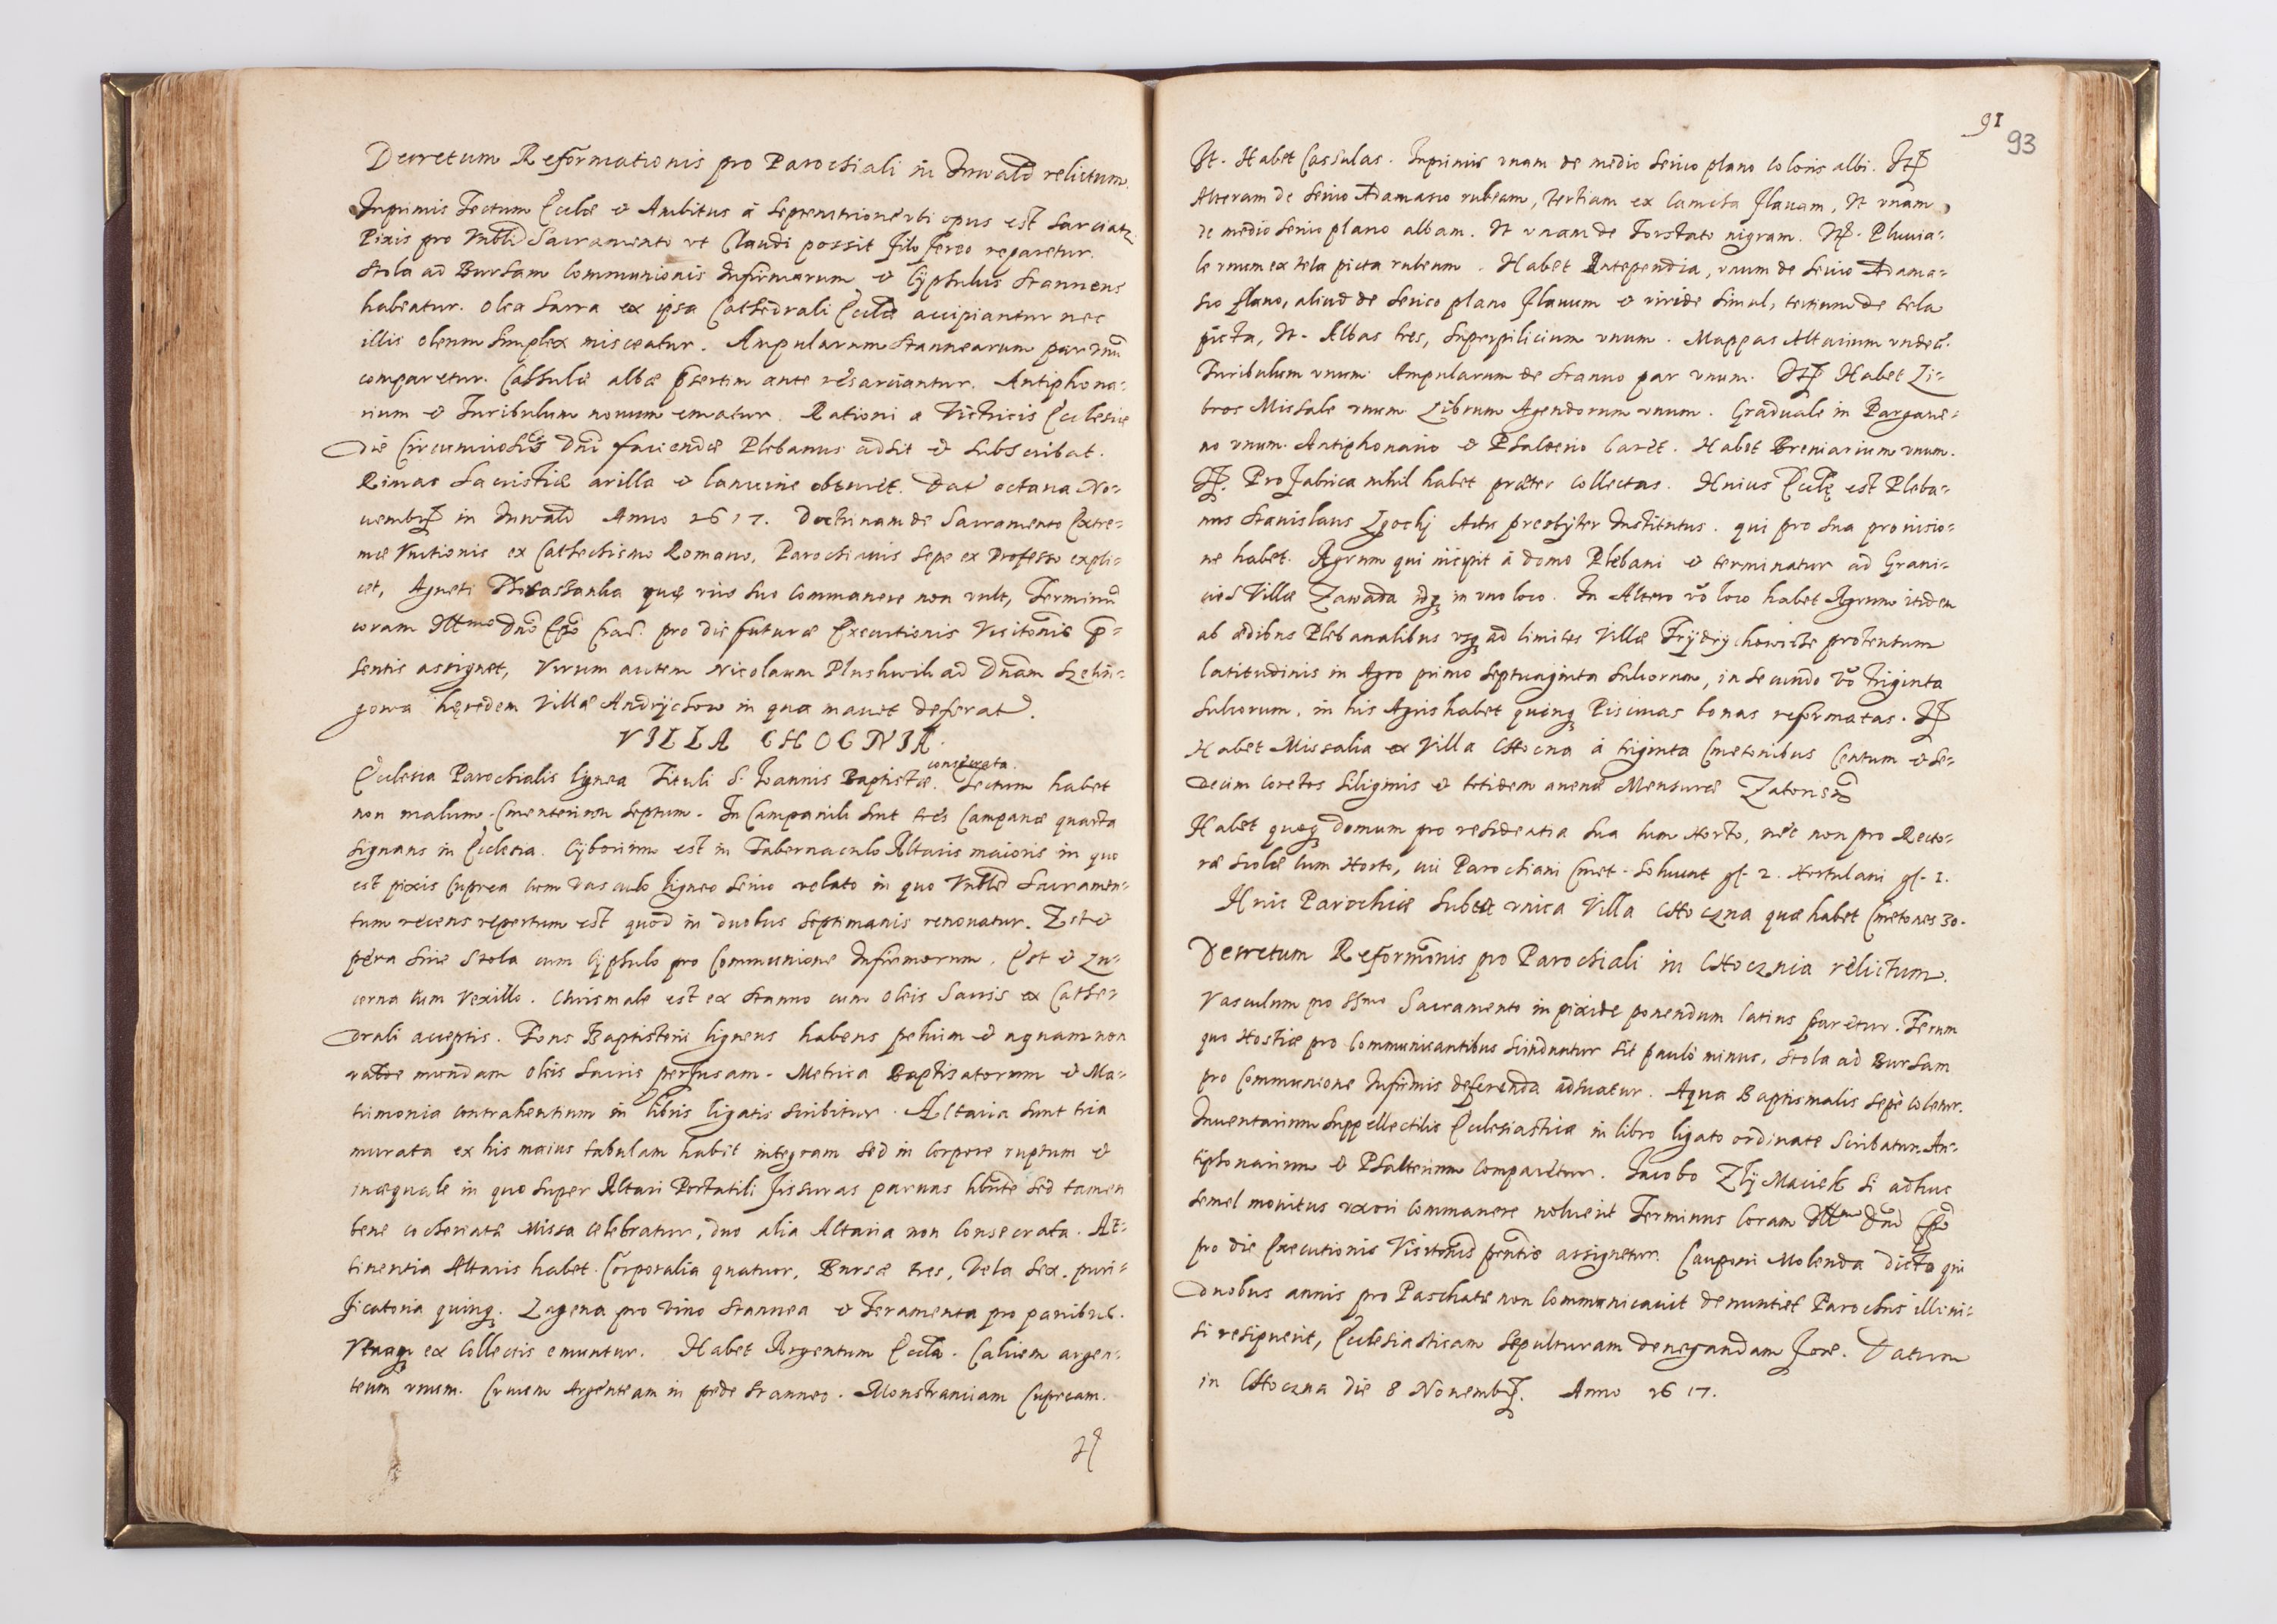 Decretum Reformationis pro Parochiali in Inwałd relictum.
Inprimis Tectum Eccliæ et Ambitus à septemtrione vbi opus est sarciatr.
Pixis pro Vnbli Sacramento vt Claudi possit filo ferreo reparetur.
Stola ad Bursam Communionis Infirmarum et Cyphulus stanneus
habeatur. Olea Sacra ex ipsa Cathedrali Ecclia accipiantur nec
illis oleum simplex misceatur. Ampularum stannearum par vnū
comparetur. Cassulæ albæ p̃sertim ante resarciantur. Antiphona-
rium et Turibulum nouum ematur. Rationi a Victricis Ecclesiæ
die Circumcisiōis Dnī faciendæ Plebanus adsit et subscribat.
Rimas Sacristiæ arilla et lanuine obturet. Dat octaua No-
uembr̃ in Inwałd Anno 1617. Doctrinam de Sacramento Extre-
mæ Vnctionis ex Cathechismo Romano, Parochianis sepe ex Professo expli-
cet, Agneti quæ viro suo Commanere non vult, Terminū
coram Illmo Dnō Epō Crac. pro die futuræ Executionis Visitōnis p̃-
sentis assignet, Virum autem Nicolaum ad Dnam Szelin-
gowa hęredem Villæ Andrychow in qua manet deferat.
VILLA CHOCNIA.
consecrata.
Ecclesia Parochialis lignea Tituli S. Joannis Baptistæ. Tectum habet
non malum. Cmenterium septum. In Campanili sunt tres Campanæ quarta
signans in Ecclesia. Cyborium est in Tabernaculo Altaris maioris in quo
est pixis Cuprea cum vasculo ligneo serico velato in quo Vnbled Sacramen-
tum recens repertum est quod in duobus septimanis renouatur. Est et
pera sine Stola cum Cyphulo pro Communione Infirmorum. Est et Lu-
cerna cum Vexillo. Chrismale est ex stanno cum oleis Sacris ex Cathe-
drali acceptis. Fons Baptisterii ligneus habens peluim et aquam non
valde mundam oleis sacris perfusam. Metrica Baptisatorum et Ma-
trimonia contrahentium in libris ligatis scribitur. Altaria sunt tria
murata ex his maius tabulam habet integram sed in corpore ruptum et
inæquale in quo super Altari Portatili fissuras paruas hb̃nte sed tamen
bene cohærente Missa celebratur, duo alia Altaria non Consecrata. At-
tinentia Altaris habet. Corporalia quatuor, Bursæ tres, Vela sex, puri-
ficatoria quinq. Lagena pro vino stannea et Feramenta pro panibus.
Vtraq ex Collectis emuntur. Habet Argentum Eccla. Calicem argen-
teum vnum. Crucem Argenteam in pede stanneo. Monstranciam Cupream.
It
91
93
It. Habet Cassulas. Inprimis vnam de medio serico plano coloris albi. It.
Alteram de serico Adamasco rubeam, tertiam ex Camcha flauam, It vnam
de medio serico plano albam. It vnam de Forstato nigram. It. Pluuia-
le vnum ex tela picta rubeum. Habet Antependia, vnum de serico Adama-
sco flauo, aliud de serico plano flauum et viride simul, tertium de tela
picta, It. Albas tres, superpilicium vnum. Mappas Altarium vndeci.
Turibulum vnum. Ampularum de stanno par vnum. It. Habet Li-
bros Missale vnum Librum Agendorum vnum. Graduale in Pargame-
no vnum. Antiphonario et Psalterio caret. Habet Breuiarium vnum.
It. Pro fabrica nihil habet præter Collectas. Huius Ecclę est Pleba-
nus Stanislaus Zgocky Actu presbyter Institutus. qui pro sua prouisio-
ne habet. Agrum qui incipit à domo Plebani et terminatur ad Grani-
cies Villæ Zawada idq in vno loco. In Altero vō loco habet Agrum itidem
ab ædibus Plebanalibus vsq ad limites Villæ Frydrychowicze protentum
latitudinis in Agro primo septuaginta sulcorum, in secundo vō triginta
sulcorum, in his Agris habet quinq Piscinas bonas reformatas. It.
Habet Missalia ex Villa Chocna à triginta Cmetonibus Centum et se-
decim coretos siliginis et totidem auenæ Mensuræ Zatoriens.
Habet quoq domum pro residentia sua cum Horto, nec non pro Recto-
ræ scolæ cum Horto, cui Parochiani Cmet. soluunt gr. 2. Hortulani gr. 1.
Huic Parochiæ subest vnica Villa Choczna quæ habet Cmetones 30.
Decretum Reformōnis pro Parochiali in Chocznia relictum.
Vasculum pro Ssmo Sacramento in pixide ponendum latius paretur. Ferrum
quo Hostiæ pro Communicantibus scinduntur sit paulò minus, stola ad Bursam
pro Communione Infirmis deferenda adsuatur. Aqua Baptismalis sepè coletur.
Inuentarium suppellectilis Ecclesiasticæ in libro ligato ordinate scribatur. An-
tiphonarium et Psalterium comparetur. Jacobo Zly Maciek si adhuc
semel monitus vxori commanere noluerit Terminus coram Illmo Dnō Epō
pro die Executionis Visitōnis p̃ntis assignetur. Cauponi Molenda dicto qui
duobus annis pro Paschate non Communicauit denuntiet Parochus illi ni-
si resipuerit, Ecclesiasticam sepulturam denegandam fore. Datum
in Choczna die 8 Nouembr̃. Anno 1617.